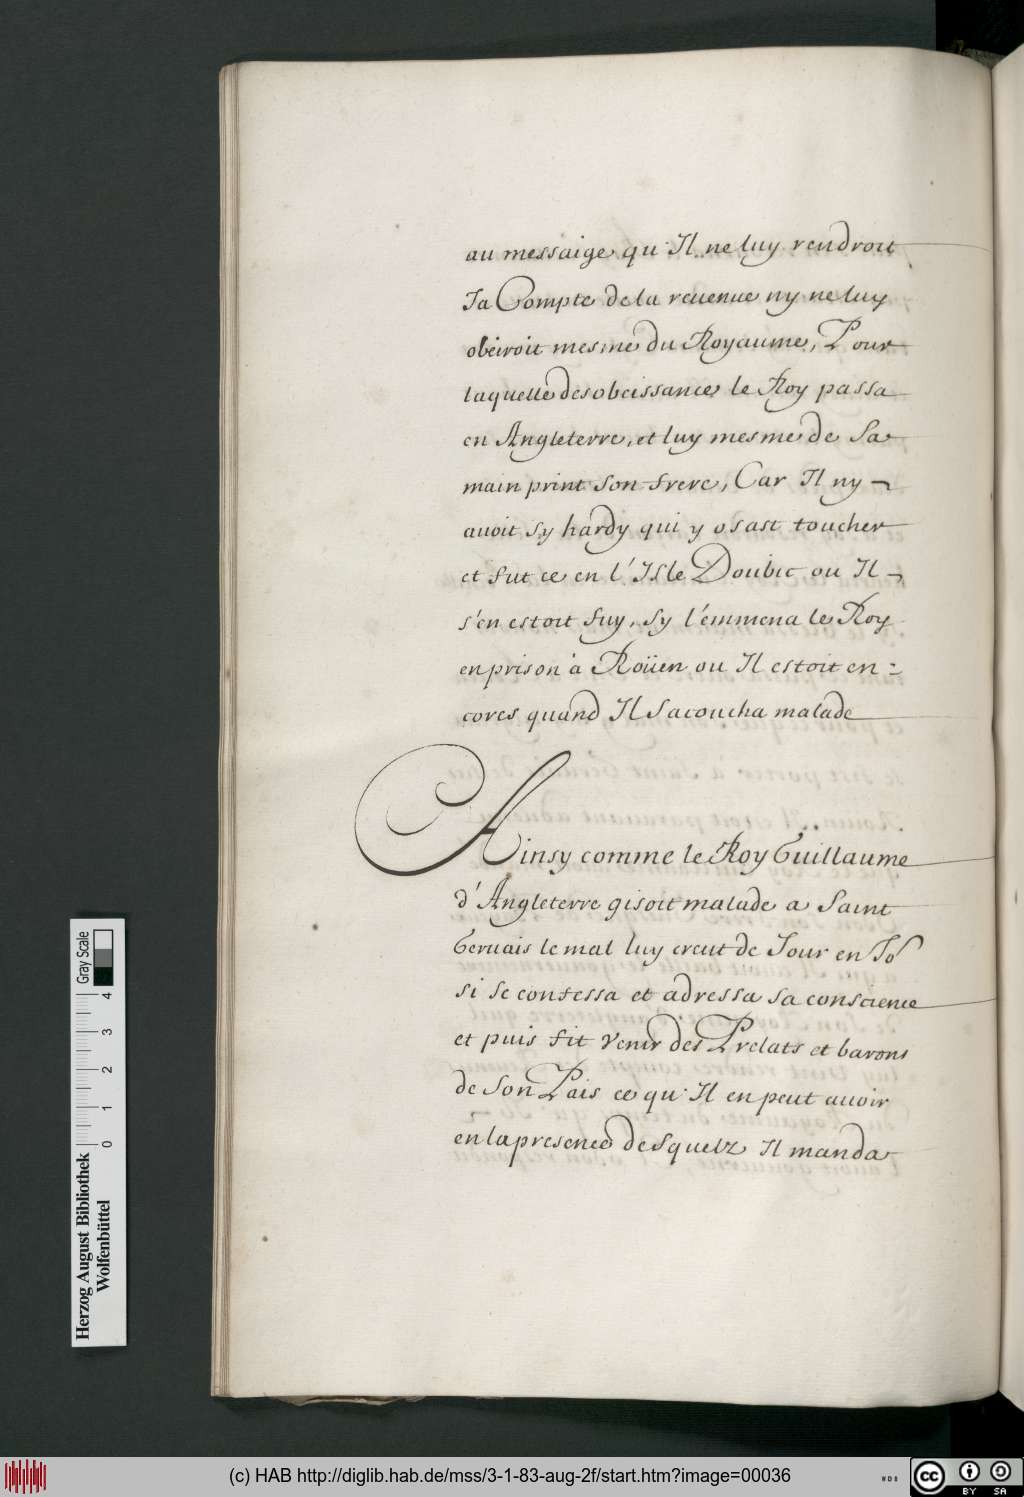 au messaige qu'Il ne luy rendroit
Ja Compte de la reuenue ny ne luy
obeiroit mesme du Royaume, Pour
laquelle desobeissance le Roy passa
en Angleterre, et luy mesme de Sa
main print Son frere, Car Il ny ¬
auoit Sy hardy qui y osast toucher
et fut ce en l'Isle Doubic ou Il ¬
s'en estoit fuy, Sy l'emmena le Roy
en prison à Roüen ou Il estoit en=
cores quand Il Sacoucha malade
Ainsy comme le Roy Guillaume
d'Angleterre gisoit malade a Saint
Geruais le mal luy creut de Jour en Jo
si Se confessa et adressa Sa conscience
et puis fit venir des Prelats et barons
de Son Pais ce qu'Il en peut auoir
en la presence deSquelz Il manda
Herzog August Bibliothek
Wolfenbüttel
0 1 2 3 4
Gray Scale
(c) HAB http://diglib.hab.de/mss/3-1-83-aug-2f/start.htm?image=00036
WDB
cc BY SA